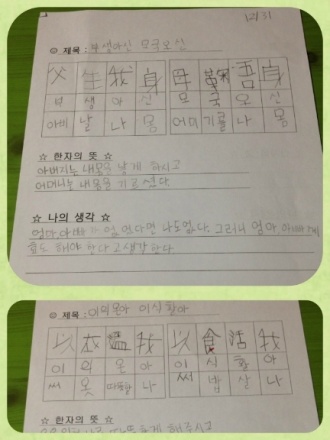 12/31
☺ 제목 : 부생아신 모국오신
父 生 我 身 母 鞠 吾 身
부 생 아 신 모 국 오 신
아비 날 나 몸 어미 기를 나 몸
☆ 한자의 뜻 ☆
아버지는 내몸을 낳게 하시고
어머니는 내몸을 기르셨다.
☆ 나의 생각 ☆
엄마 아빠가 없었다면 나도없다. 그러니 엄마 아빠께
효도 해야 한다고생각한다
☺ 제목 : 이의온아 이식활아
以 衣 溫 我 以 食 活 我
이 의 온 아 이 식 활 아
써 옷 따뜻할 나 써 밥 살 나
☆ 한자의 뜻 ☆